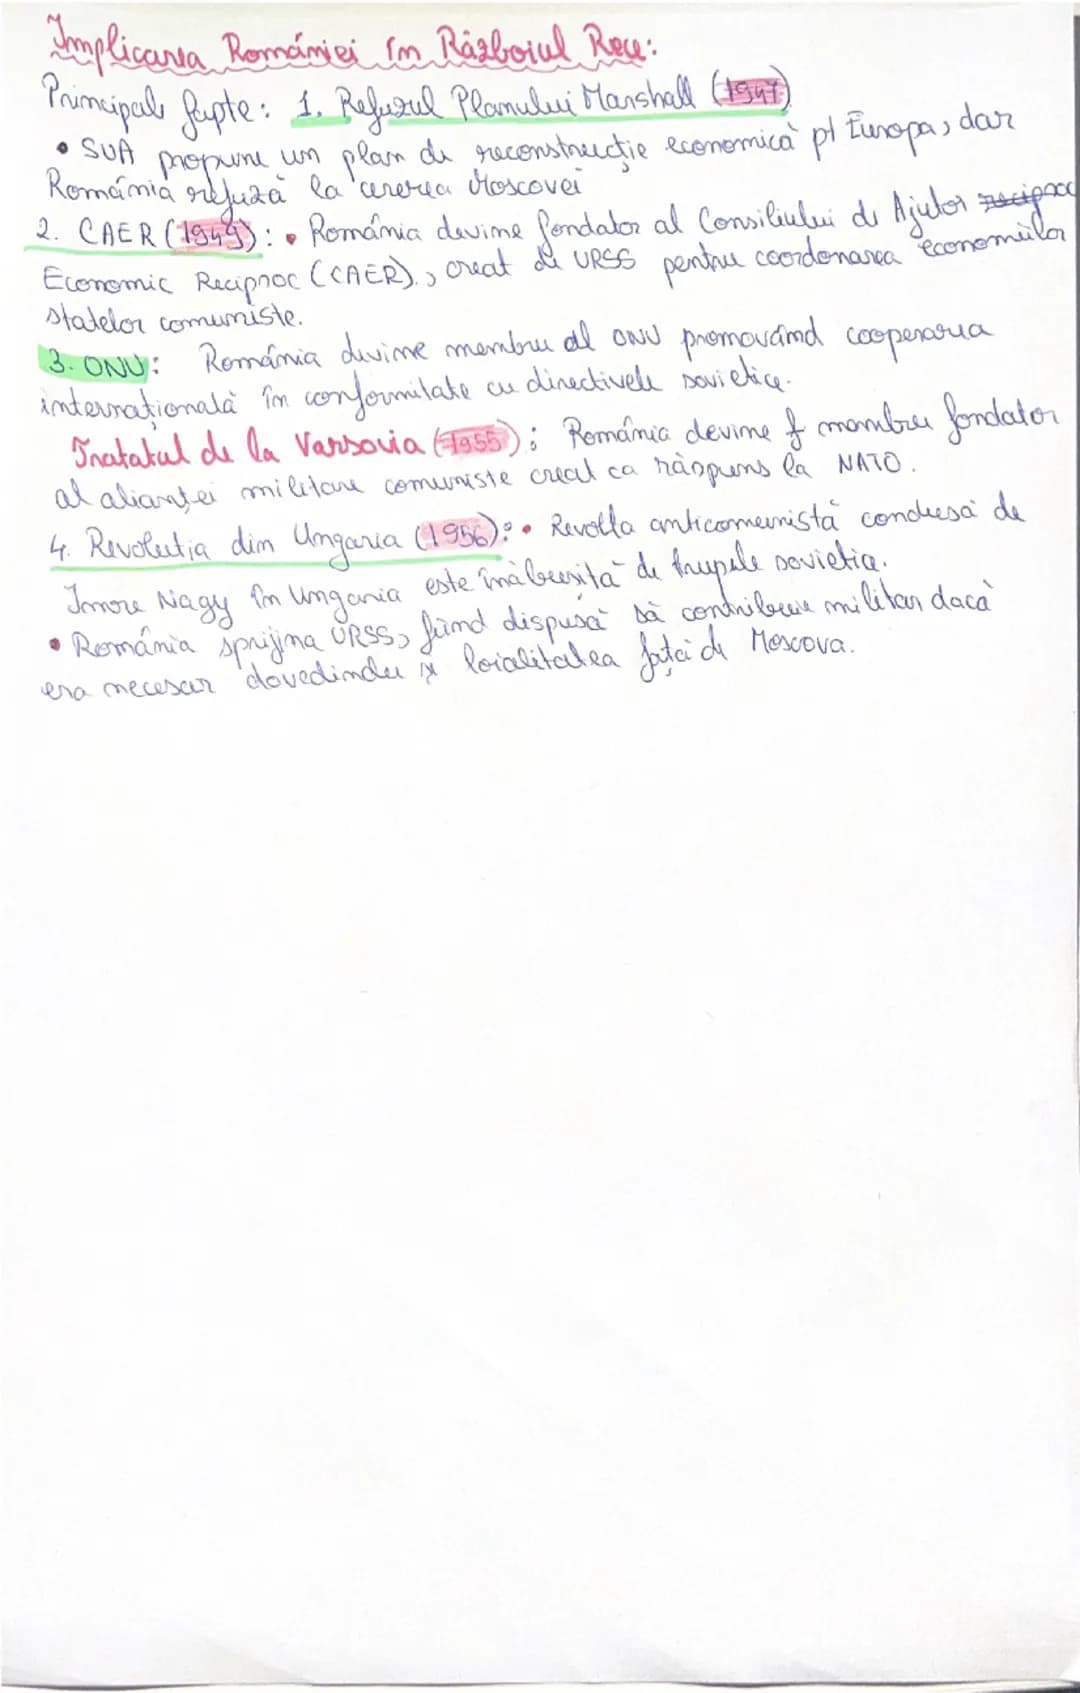 Implicarea României în Războiul Rece:
Principale fapte: 1. Refuzul Planului Marshall (1947)
• SUA propune un plan de reconstrucție economică pt Europa, dar
România refuză la cererea Moscovei
2. CAER (1949): • România devine fondator al Consiliului de Ajutor reciproc
Economic Reciproc (CAER), creat de URSS pentru coordonarea economiilor
statelor comuniste.
3. ONU: România devine membru al ONU promovând cooperarea
internațională în conformitate cu directivele sovietice.
Tratatul de la Varsovia (1955): România devine f membru fondator
al alianței militare comuniste creat ca răspuns la NATO.
4. Revolutia din Ungaria (1956): • Revolta anticomunistă condusă de
Imre Nagy în Ungaria este înăbușită de trupele sovietice.
• România sprijină URSS, fiind dispusă să contribuie militar dacă
era necesar dovedindu și loialitatea față de Moscova.